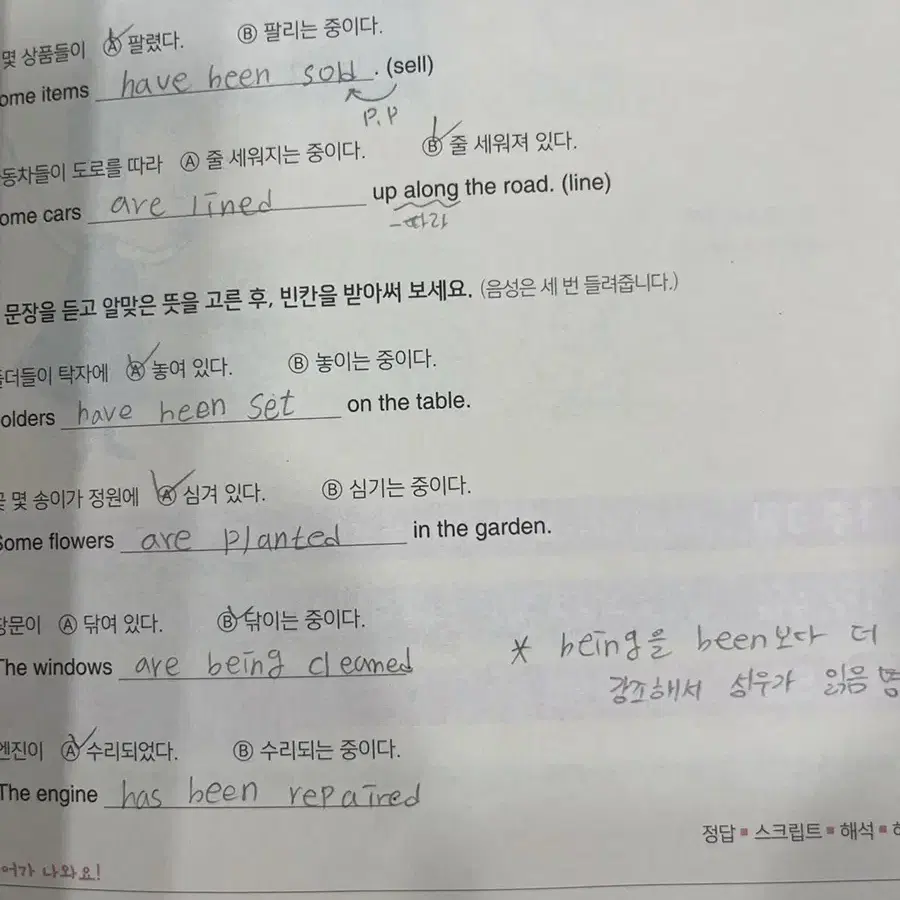 몇 상품들이 Ⓐ 팔렸다. Ⓑ 팔리는 중이다.
ome items have been sold. (sell)
P.P
동차들이 도로를 따라 Ⓐ 줄 세워지는 중이다. Ⓑ 줄 세워져 있다.
ome cars are lined up along the road. (line)
-따라
문장을 듣고 알맞은 뜻을 고른 후, 빈칸을 받아써 보세요. (음성은 세 번 들려줍니다.)
더들이 탁자에 Ⓐ 놓여 있다. Ⓑ 놓이는 중이다.
olders have been set on the table.
몇 송이가 정원에 Ⓐ 심겨 있다. Ⓑ 심기는 중이다.
Some flowers are planted in the garden.
창문이 Ⓐ 닦여 있다. Ⓑ 닦이는 중이다.
The windows are being cleaned
* being을 been보다 더
강조해서 성우가 읽음
엔진이 Ⓐ 수리되었다. Ⓑ 수리되는 중이다.
The engine has been repaired
정답 ■ 스크립트 ■ 해석 ■
어가 나와요!